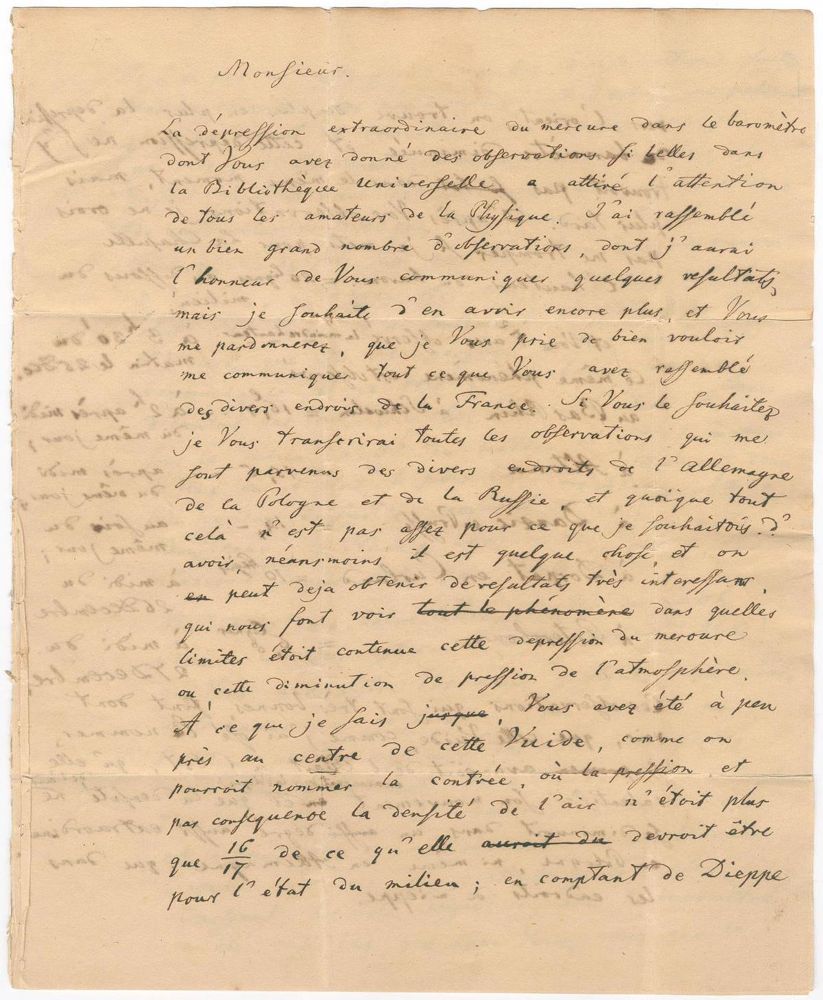 Monsieur.
La dépression extraordinaire du mercure dans le baromètre
dont Vous avez donné des observations si belles dans
la Bibliothèque universelle a attiré l'attention
de tous les amateurs de la Physique. J'ai rassemblé
un bien grand nombre d'observations, dont j'aurai
l'honneur de Vous communiquer quelques resultats,
mais je souhaite d'en avoir encore plus, et Vous
me pardonnerez, que je Vous prie de bien vouloir
me communiquer tout ce que Vous avez rassemblé
des divers endrois de la France. Si Vous le souhaitez
je Vous transcrirai toutes les observations qui me
sont parvenus des divers endroits de l'Allemagne
de la Pologne et de la Russie et quoique tout
celà n'est pas assez pour ce que je souhaitois d'
avoir, néansmoins il est quelque chose et on
en peut deja obtenir de resultats très interessans,
qui nous font voir tout le phénomène dans quelles
limites étoit contenue cette depression du mercure
ou cette diminution de pression de l'atmosphère.
A ce que je sais jusque, Vous avez été à peu
près au centre de cette Vuide, comme on
pourroit nommer la contrée, où la pression et
pas consequence la densité de l'air n'étoit plus
que 16/17 de ce qu'elle auroit du devroit être
pour l'état du milieu; en comptant de Dieppe